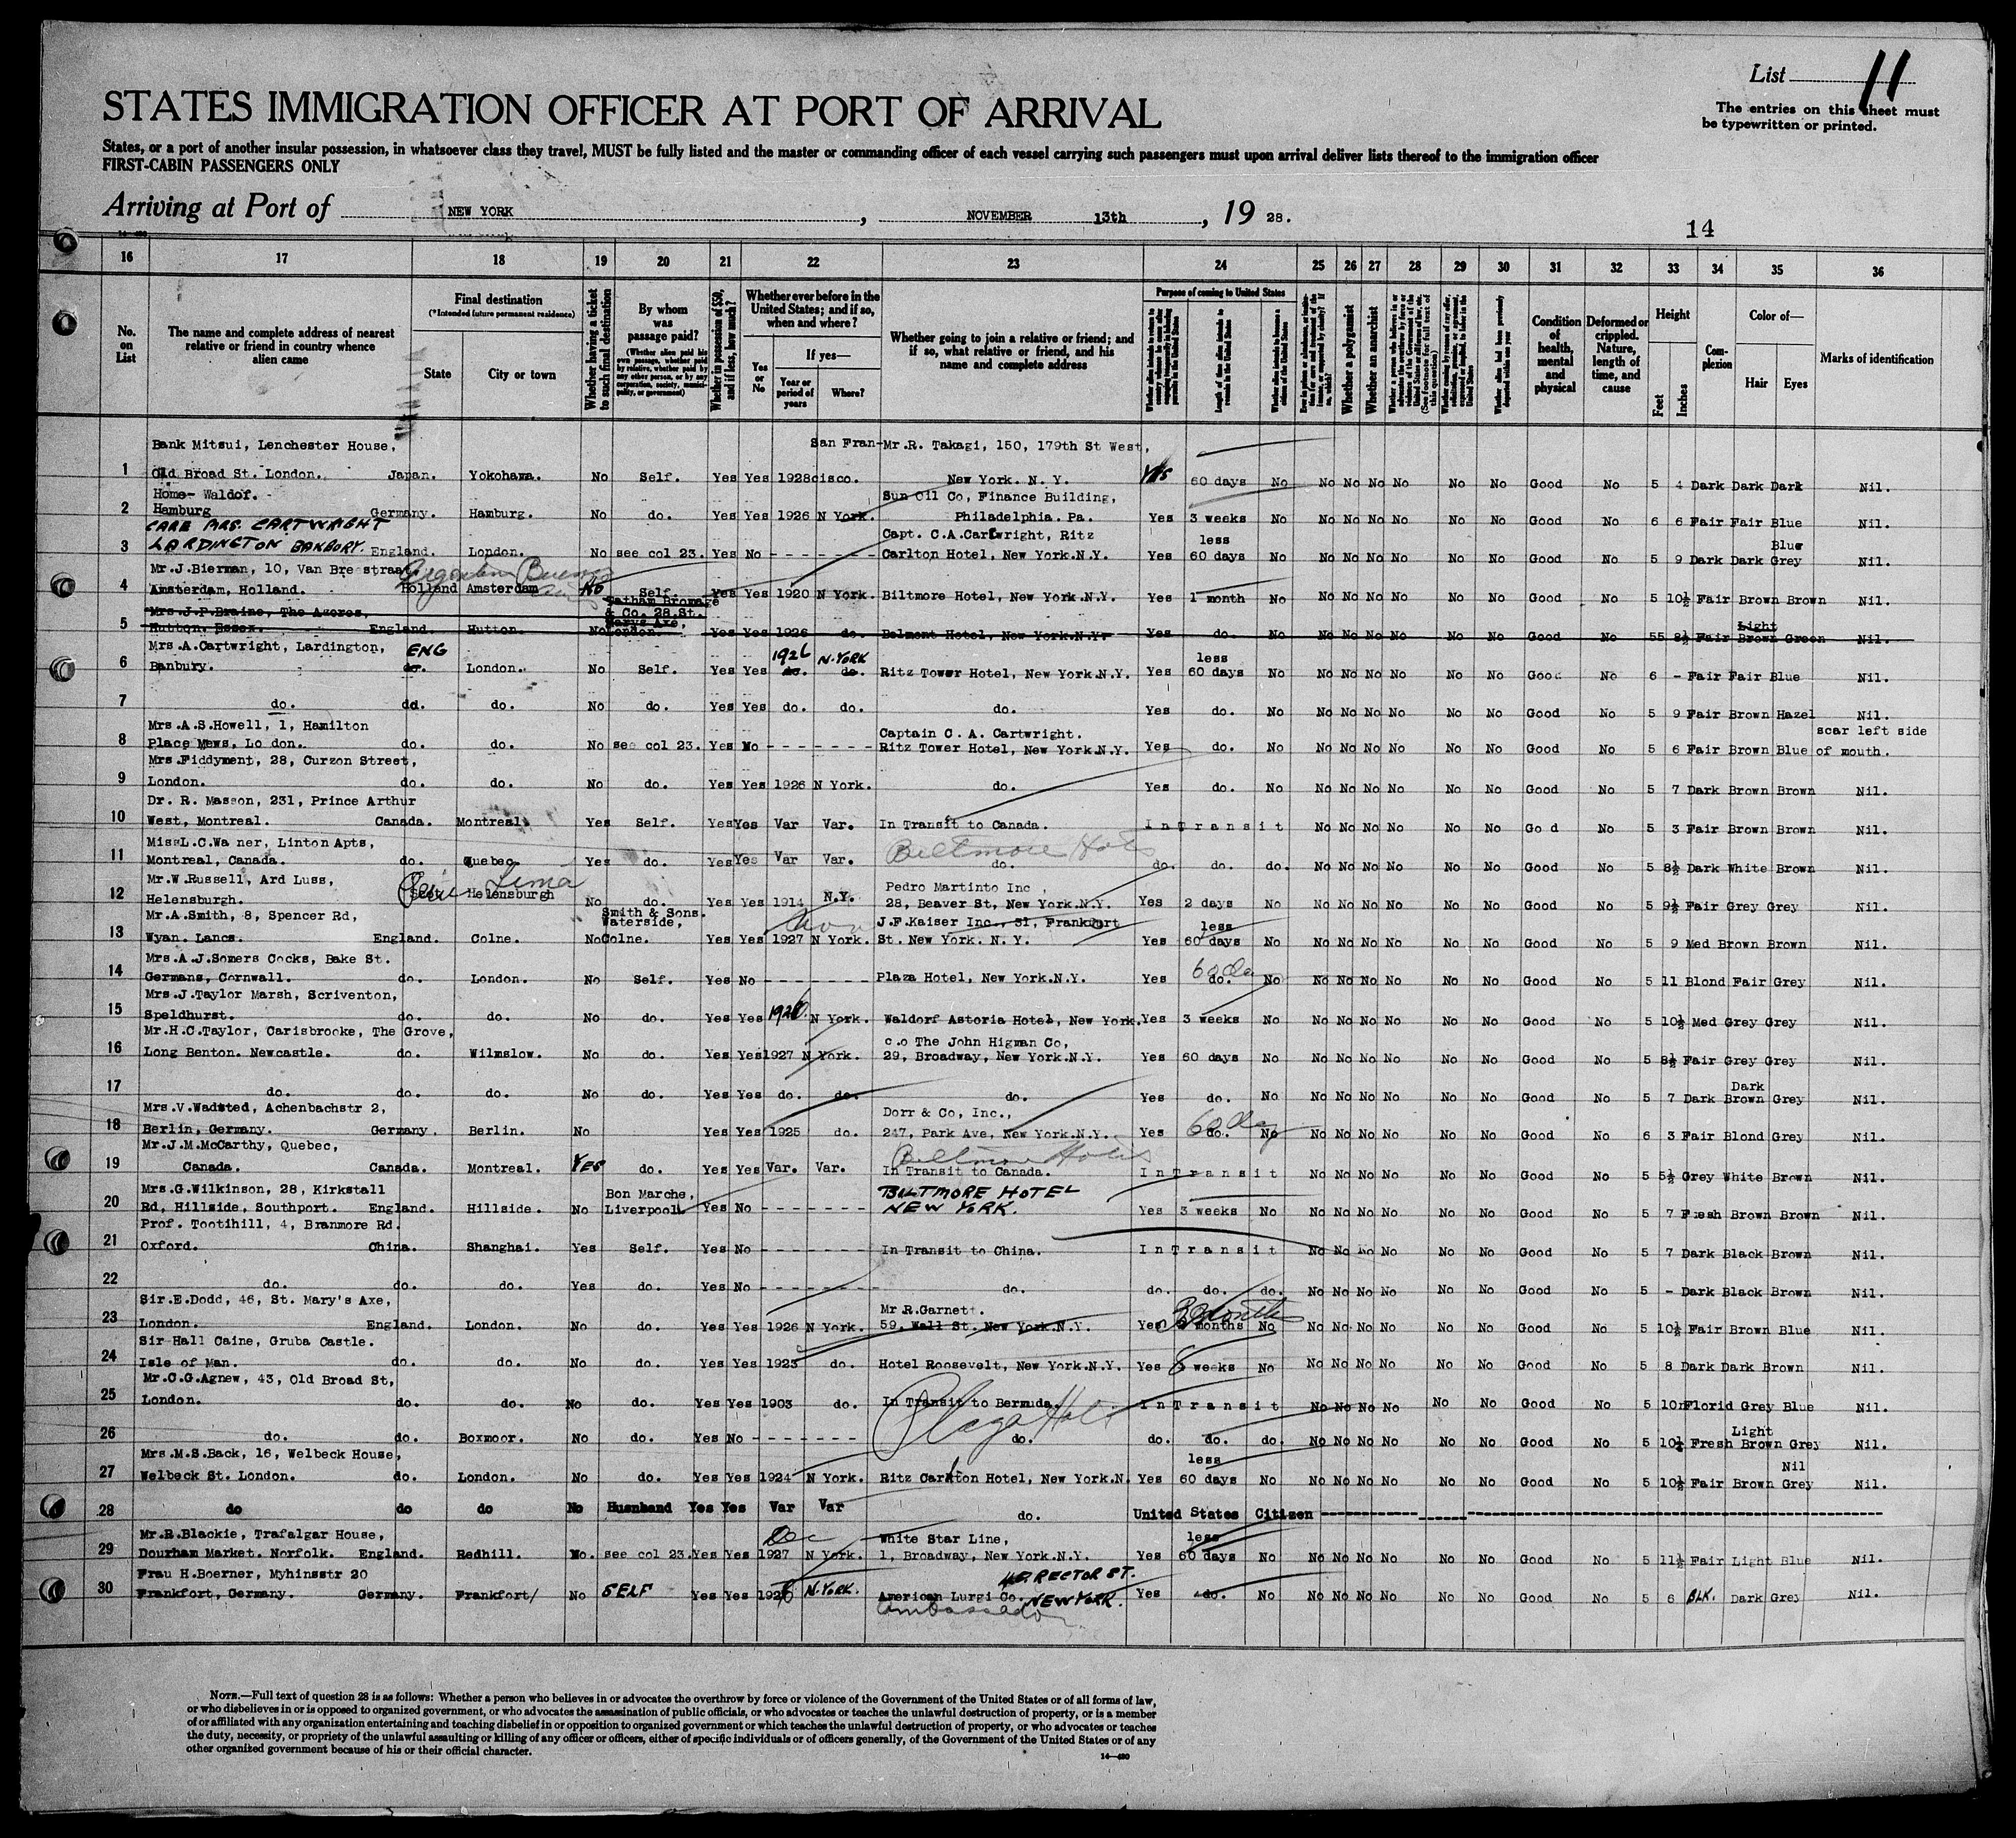 List 11
The entries on this sheet must
be typewritten or printed.
STATES IMMIGRATION OFFICER AT PORT OF ARRIVAL
States, or a port of another insular possession, in whatsoever class they travel, MUST be fully listed and the master or commanding officer of each vessel carrying such passengers must upon arrival deliver lists thereof to the immigration officer
FIRST-CABIN PASSENGERS ONLY
Arriving at Port of NEW YORK, NOVEMBER 13th, 19 28.
14
16 17 18 19 20 21 22 23 24 25 26 27 28 29 30 31 32 33 34 35 36
No. on List
The name and complete address of nearest relative or friend in country whence alien came
Final destination
(*Intended future permanent residence)
State
City or town
Whether having a ticket to such final destination
By whom was passage paid?
(Whether alien paid his own passage, whether paid by relative, whether paid by any other person, or by any corporation, society, municipality, or government)
Whether in possession of $50, and if less, how much?
Whether ever before in the United States; and if so, when and where?
Yes or No
If yes—
Year or period of years
Where?
Whether going to join a relative or friend; and if so, what relative or friend, and his name and complete address
Purpose of coming to United States
Length of time alien intends to remain in the United States
Whether alien intends to become a citizen of the United States
Whether a polygamist
Whether an anarchist
Whether alien had been previously deported within one year
Condition of health, mental and physical
Deformed or crippled. Nature, length of time, and cause
Height
Feet
Inches
Complexion
Color of—
Hair
Eyes
Marks of identification
Bank Mitsui, Lenchester House, San Fran- Mr.R. Takagi, 150, 179th St West,
1 Old Broad St. London. Japan. Yokohama. No Self. Yes Yes 1928 cisco. New York. N.Y. Yes 60 days No No No No No No No Good No 5 4 Dark Dark Dark Nil.
Home- Waldof. Sun Oil Co, Finance Building,
2 Hamburg Germany. Hamburg. No do. Yes Yes 1926 N York. Philadelphia. Pa. Yes 3 weeks No No No No No No No Good No 6 6 Fair Fair Blue Nil.
CARE MRS. CARTWRIGHT Capt. C.A.Cartwright, Ritz less Blue
3 LARDINGTON BANBURY. England. London. No see col 23. Yes No - - - - - - - Carlton Hotel, New York.N.Y. Yes 60 days No No No No No No No Good No 5 9 Dark Dark Grey Nil.
Mr.J.Bierman, 10, Van Bre straat Buenos
4 Amsterdam, Holland. Holland Amsterdam No Self. Yes Yes 1920 N York. Biltmore Hotel, New York.N.Y. Yes 1 month No No No No No No No Good No 5 10½ Fair Brown Brown Nil.
Mrs.J.P.Braine, The Azores, & Co. 28.St. Marys Axe, Light
5 Hutton. Essex. England. Hutton. No London. Yes Yes 1926 do. Belmont Hotel, New York.N.Y. Yes do. No No No No No No No Good No 55 8½ Fair Brown Green Nil.
Mrs.A.Cartwright, Lardington, ENG 1926 N.YORK less
6 Banbury. do. London. No Self. Yes Yes do. do. Ritz Tower Hotel, New York.N.Y. Yes 60 days No No No No No No No Good No 6 - Fair Fair Blue Nil.
7 do. do. do. No do. Yes Yes do. do. do. Yes do. No No No No No No No Good No 5 9 Fair Brown Hazel Nil.
Mrs.A.S.Howell, 1, Hamilton Captain C.A. Cartwright. scar left side
8 Place Mews, Lo don. do. do. No see col 23. Yes No - - - - - - - Ritz Tower Hotel, New York.N.Y. Yes do. No No No No No No No Good No 5 6 Fair Brown Blue of mouth.
Mrs.Fiddyment, 28, Curzon Street,
9 London. do. do. No do. Yes Yes 1926 N York. do. Yes do. No No No No No No No Good No 5 7 Dark Brown Brown Nil.
Dr. R. Masson, 231, Prince Arthur
10 West, Montreal. Canada. Montreal. Yes Self. Yes Yes Var Var. In Transit to Canada. In Transit No No No No No No Go d No 5 3 Fair Brown Brown Nil.
Miss L.C.Wa ner, Linton Apts, Biltmore Hotel
11 Montreal, Canada. do. Quebec. Yes do. Yes Yes Var Var. do. do. do. do. No No No No No No Good No 5 8½ Dark White Brown Nil.
Mr.W.Russell, Ard Luss, Lima Pedro Martinto Inc,
12 Helensburgh. Scot. Helensburgh No do. Yes Yes 1914 N.Y. 28, Beaver St, New York.N.Y. Yes 2 days No No No No No No No Good No 5 9½ Fair Grey Grey Nil.
Mr.A.Smith, 8, Spencer Rd, Smith & Sons. Waterside, J.F.Kaiser Inc., 31, Frankfort less
13 Wyan. Lancs. England. Colne. No Colne. Yes Yes 1927 N York. St. New York. N.Y. Yes 60 days No No No No No No No Good No 5 9 Med Brown Brown Nil.
Mrs.A.J.Somers Cocks, Bake St.
14 Germans, Cornwall. do. London. No Self. Yes No - - - - - - - Plaza Hotel, New York.N.Y. Yes do. No No No No No No No Good No 5 11 Blond Fair Grey Nil.
Mrs.J.Taylor Marsh, Scriventon,
15 Speldhurst. do. do. No do. Yes Yes N York. Waldorf Astoria Hotel, New York. Yes 3 weeks No No No No No No No Good No 5 10½ Med Grey Grey Nil.
Mr.H.C.Taylor, Carisbrooke, The Grove, c.o The John Higman Co,
16 Long Benton. Newcastle. do. Wilmslow. No do. Yes Yes 1927 N York. 29, Broadway, New York.N.Y. Yes 60 days No No No No No No No Good No 5 8½ Fair Grey Grey Nil.
17 do. do. do. No do. Yes Yes do. do. do. Yes do. No No No No No No No Good No 5 7 Dark Dark Brown Grey Nil.
Mrs.V.Wadsted, Achenbachstr 2, Dorr & Co, Inc.,
18 Berlin, Germany. Germany. Berlin. No Yes Yes 1925 do. 247, Park Ave, New York.N.Y. Yes do. No No No No No No No Good No 6 3 Fair Blond Grey Nil.
Mr.J.M.McCarthy, Quebec, Biltmore Hotel
19 Canada. Canada. Montreal. YES do. Yes Yes Var. Var. In Transit to Canada. In Transit No No No No No No Good No 5 5½ Grey White Brown Nil.
Mrs.G.Wilkinson, 28, Kirkstall Bon Marche, BILTMORE HOTEL
20 Rd, Hillside, Southport. England. Hillside. No Liverpool. Yes No - - - - - - - NEW YORK. Yes 3 weeks No No No No No No No Good No 5 7 Fresh Brown Brown Nil.
Prof. Tootihill, 4, Branmore Rd.
21 Oxford. China. Shanghai. Yes Self. Yes No - - - - - - - In Transit to China. In Transit No No No No No No Good No 5 7 Dark Black Brown Nil.
22 do. do. do. Yes do. Yes No - - - - - - - do. do. do. do. No No No No No No Good No 5 - Dark Black Brown Nil.
Sir.E.Dodd, 46, St. Mary's Axe, Mr.R.Garnett.
23 London. England. London. No do. Yes Yes 1926 N York. 59, Wall St. New York.N.Y. Yes months No No No No No No No Good No 5 10½ Fair Brown Blue Nil.
Sir Hall Caine, Gruba Castle.
24 Isle of Man. do. do. No do. Yes Yes 1923 do. Hotel Roosevelt, New York.N.Y. Yes weeks No No No No No No No Good No 5 8 Dark Dark Brown Nil.
Mr.C.G.Agnew, 43, Old Broad St,
25 London. do. do. No do. Yes Yes 1903 do. In Transit to Bermuda. In Transit No No No No No No Good No 5 10 Florid Grey Blue Nil.
Plaza Hotel Light
26 do. do. Boxmoor. No do. Yes No - - - - - - - do. do. do. do. No No No No No No Good No 5 10½ Fresh Brown Grey Nil.
Mrs.M.S.Back, 16, Welbeck House, less Nil
27 Welbeck St. London. do. London. No do. Yes Yes 1924 N York. Ritz Carlton Hotel, New York.N. Yes 60 days No No No No No No No Good No 5 10½ Fair Brown Grey Nil.
28 do do do No Husnband Yes Yes Var Var do. United States Citizen
Mr.R.Blackie, Trafalgar House, Dec White Star Line, less
29 Dourham Market. Norfolk. England. Redhill. No. see col 23. Yes Yes 1927 N York. 1, Broadway, New York.N.Y. Yes 60 days No No No No No No No Good No 5 11½ Fair Light Blue Nil.
Frau H.Boerner, Myhinsstr 20 RECTOR ST.
30 Frankfort, Germany. Germany. Frankfort/ No SELF Yes Yes N.YORK. American Lurgi Co. NEW YORK. Yes do. No No No No No No No Good No 5 6 BLK. Dark Grey Nil.
Ambassador
NOTE.—Full text of question 28 is as follows: Whether a person who believes in or advocates the overthrow by force or violence of the Government of the United States or of all forms of law,
or who disbelieves in or is opposed to organized government, or who advocates the assassination of public officials, or who advocates or teaches the unlawful destruction of property, or is a member
of or affiliated with any organization entertaining and teaching disbelief in or opposition to organized government or which teaches the unlawful destruction of property, or who advocates or teaches
the duty, necessity, or propriety of the unlawful assaulting or killing of any officer or officers, either of specific individuals or of officers generally, of the Government of the United States or of any
other organized government because of his or their official character.
14—480